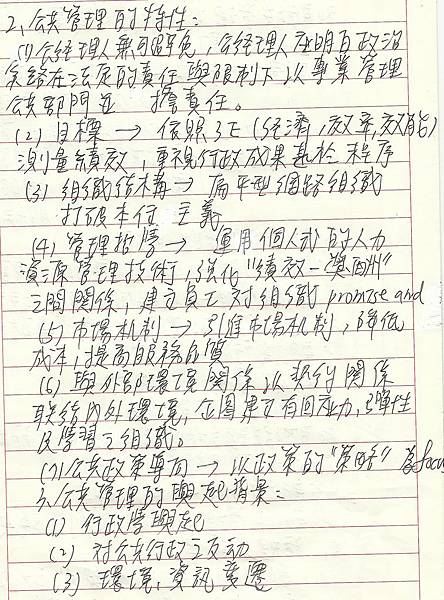 2、公共管理的特性:
(1)公經理人無可避免,公經理人應明白政治
系絡在法定的責任與限制下以專業管理
公共部門並 擔責任。
(2) 目標 → 依照3E (經濟,效率,效能)
測量績效,重視行政成果甚於程序
(3) 組織結構→扁平型網路組織
打破本位主義
(4) 管理 → 運用個人式的人力
資源管理技術,強化"績效-獎酬"
之間關係,建立員工對組織 promise and
(5) 市場机制 → 引進市場机制,降低
成本,提高服務品質
(6) 與外部環境關係,以契約關係
聯結內外環境,企圖建立有回應力,彈性
及學習之組織。
(7)公共政策導向→以政策的"策略"為focus
3、公共管理的興起背景:
(1) 行政學興起
(2) 對公共行政之反動
(3) 環境,資訊變遷